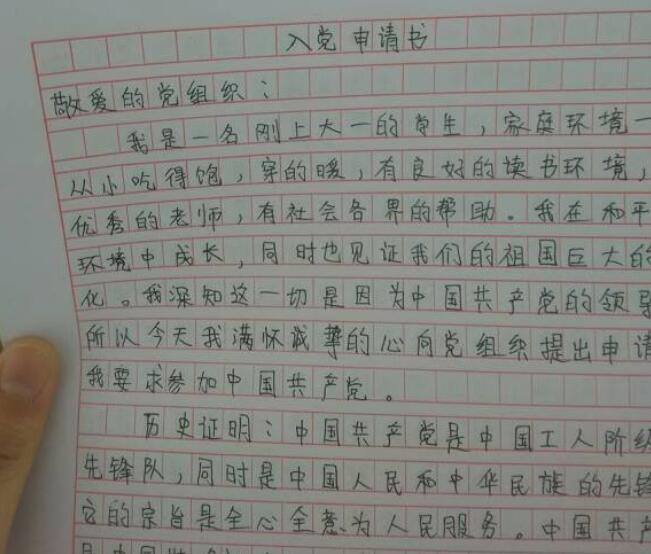 入党申请书
敬爱的党组织：
我是一名刚上大一的学生，家庭环境一
从小吃得饱，穿的暖，有良好的读书环境，
优秀的老师，有社会各界的帮助。我在和平
环境中成长，同时也见证我们的祖国巨大的
化。我深知这一切是因为中国共产党的领导
所以今天我满怀诚挚的心向党组织提出申请
我要求参加中国共产党。
历史证明：中国共产党是中国工人阶级
先锋队，同时是中国人民和中华民族的先锋
它的宗旨是全心全意为人民服务。中国共产